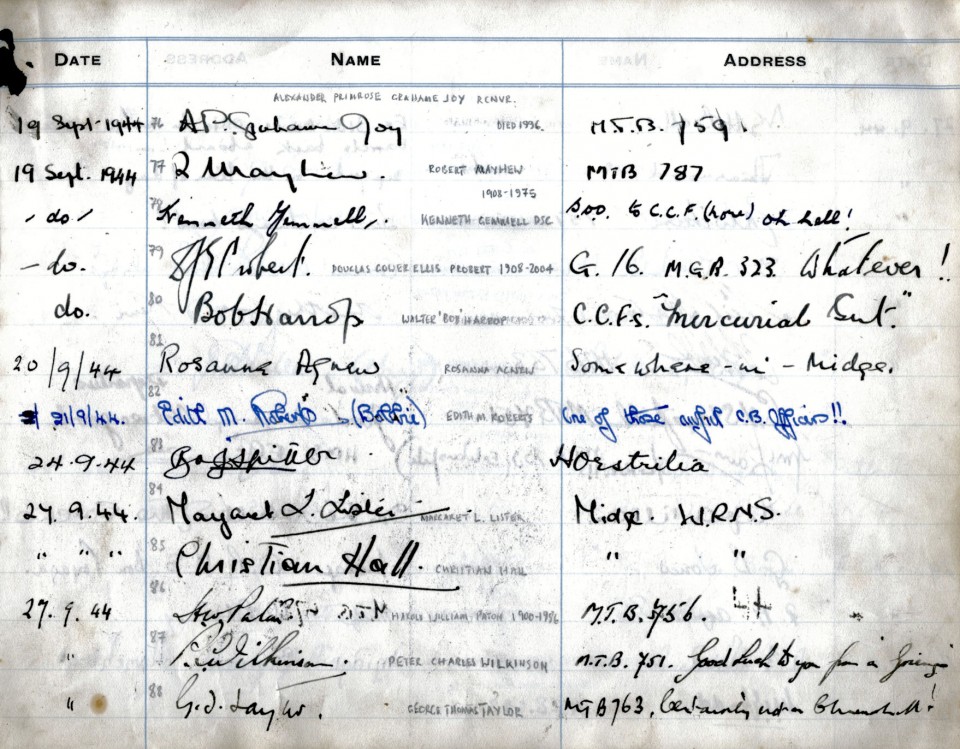 DATE NAME ADDRESS
ALEXANDER PRIMROSE GRAHAME JOY RCNVR.
19 Sept 1944 76 A.P. Grahame Joy DIED 1996. M.T.B. 759.
19 Sept. 1944 77 R Mayhew. ROBERT MAYHEW MTB 787
1908-1975
- do - 78 Kenneth Gemmell. KENNETH GEMMELL DSC S.O.O. to C.C.F. (Nore) oh hell!
- do. 79 Probert. DOUGLAS GOWER ELLIS PROBERT 1908-2004 G. 16. M.G.B. 323. Whatever!
do. 80 Bob Harrop WALTER 'BOB' HARROP C.C.F's. "Mercurial Gent."
20/9/44 81 Rosanna Agnew ROSANNA AGNEW Somewhere - in - Midge.
21/9/44. 82 Edith M. Roberts (Bobbie) EDITH M. ROBERTS One of those awful C.B. Officers!!
24-9-44 83 Horstrilia
27.9.44. 84 Margaret L. Lister MARGARET L. LISTER Midge. W.R.N.S.
" " " 85 Christian Hall. CHRISTIAN HALL " "
27.9.44 86 HAROLD WILLIAM PATON 1900-1956 M.T.B. 756 44
" 87 P.C. Wilkinson. PETER CHARLES WILKINSON M.T.B. 751. Good luck to you from a
" 88 G.T. Taylor. GEORGE THOMAS TAYLOR MTB 763. Certainly not a